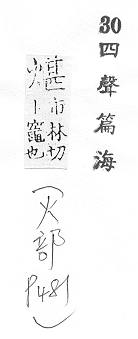 30四聲篇海
市林切
卜竈也
(火部 P481)